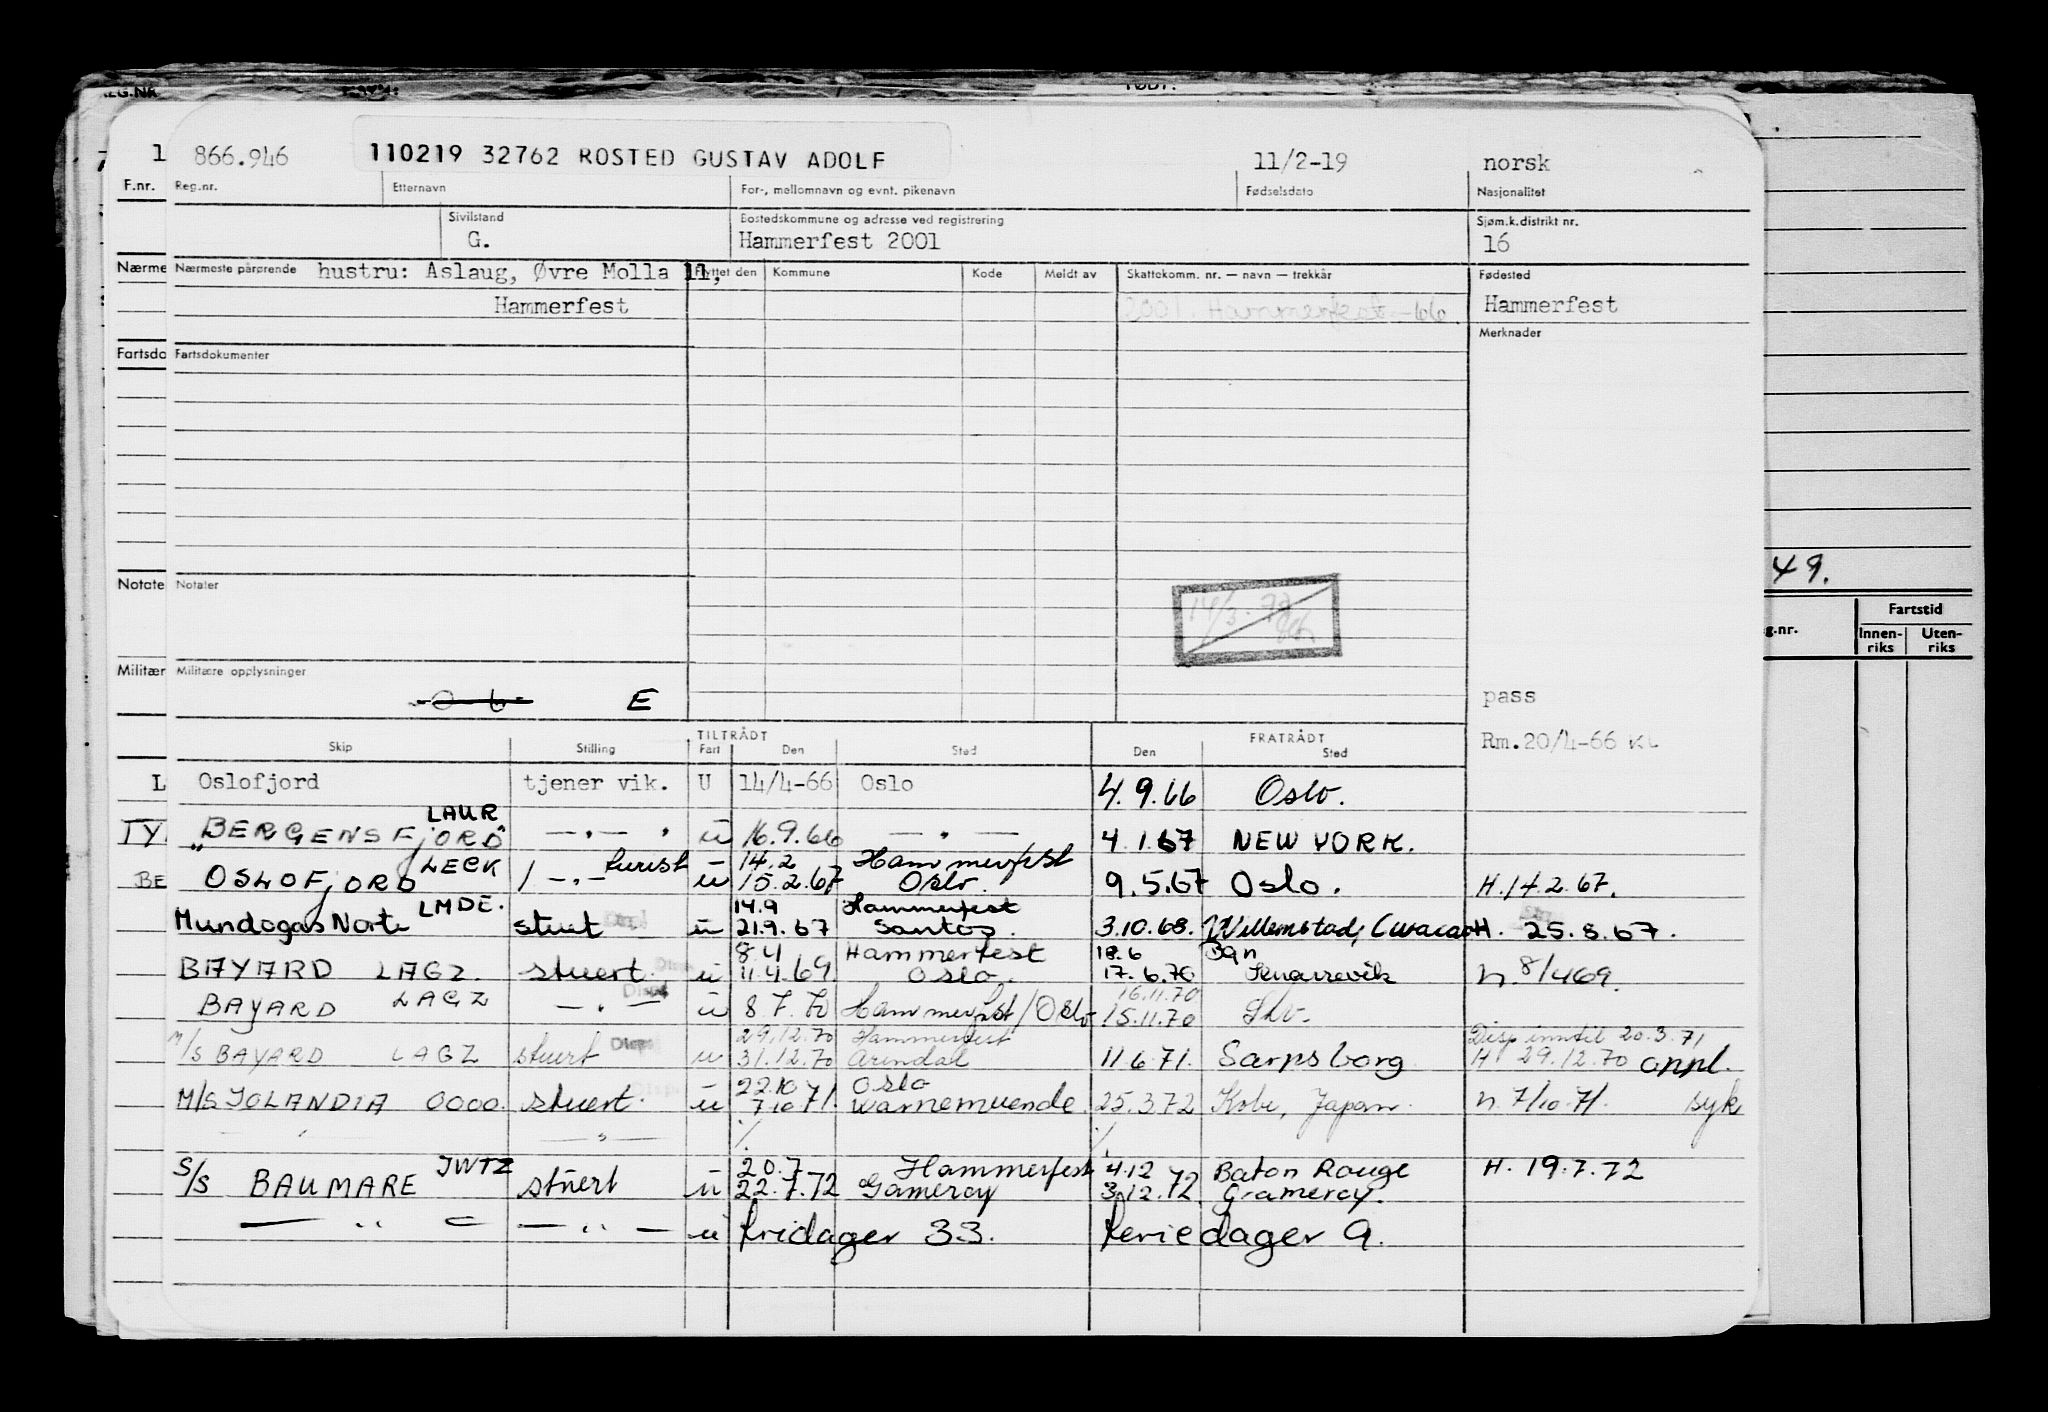 LG.NR
FØDT:
1 866.946 110219 32762 ROSTED GUSTAV ADOLF 11/2-19 norsk
F.nr. Reg.nr. Etternavn For-, mellomnavn og evnt. pikenavn Fødselsdato Nasjonalitet
Sivilstand Bostedskommune og adresse ved registrering Sjøm.k.distrikt nr.
G. Hammerfest 2001 16
Nærme Nærmeste pårørende hustru: Aslaug, Øvre Molla 11, Flyttet den Kommune Kode Meldt av Skattekomm. nr. — navn — trekkår Fødested
Hammerfest 2001 Hammerfest -66 Hammerfest
Merknader
Fartsdo Fartsdokumenter
49.
Notate Notater
14/3.72
Fartstid
g.nr. Innen-riks Uten-riks
Militær Militære opplysninger
E pass
TILTRÅDT FRATRÅDT Rm.20/4-66 KL
Skip Stilling Fart Den Sted Den Sted
L Oslofjord tjener vik. U 14/4-66 Oslo 4.9.66 Oslo.
LAUR
TY. "BERGENSFJORD" — " — " u 16.9.66 — " — 4.1.67 NEW YORK.
LECK turist 14.2 Hammerfest
BE OSLOFJORD / — " — u 15.2.67 Oslo. 9.5.67 Oslo. H.14.2.67.
LMDE. 14.9 Hammerfest
Mundogas Norte stuert u 21.9.67 Santos. 3.10.68. Willemstad, Curacao H. 25.8.67.
8.4 Hammerfest 18.6 Bgn
BAYARD LAGZ. stuert. u 11.4.69 Oslo. 17.6.70 Knarrevik n. 8/4 69.
16.11.70
BAYARD LAGZ — " — u 8.7.70 Hammerfest/Oslo 15.11.70
29.12.70 Hammerfest Disp inntil 20.3.71
M/S BAYARD LAGZ stuert Disp u 31.12.70 Arendal 11.6.71. Sarpsborg H 29.12.70 oppl.
22.10 Oslo
M/S JOLANDIA OOOO. stuert. u 7.10.71. Warnemuende. 25.3.72 Kobe, Japan. n. 7/10.71. syk
— " — — " — ./. ./.
JWTZ 20.7 Hammerfest 4.12 Baton Rouge H. 19.7.72
S/S BAUMARE stuert u 22.7.72 Gramercy 3.12.72 Gramercy.
— " — — " — u fridager 33. feriedager 9.